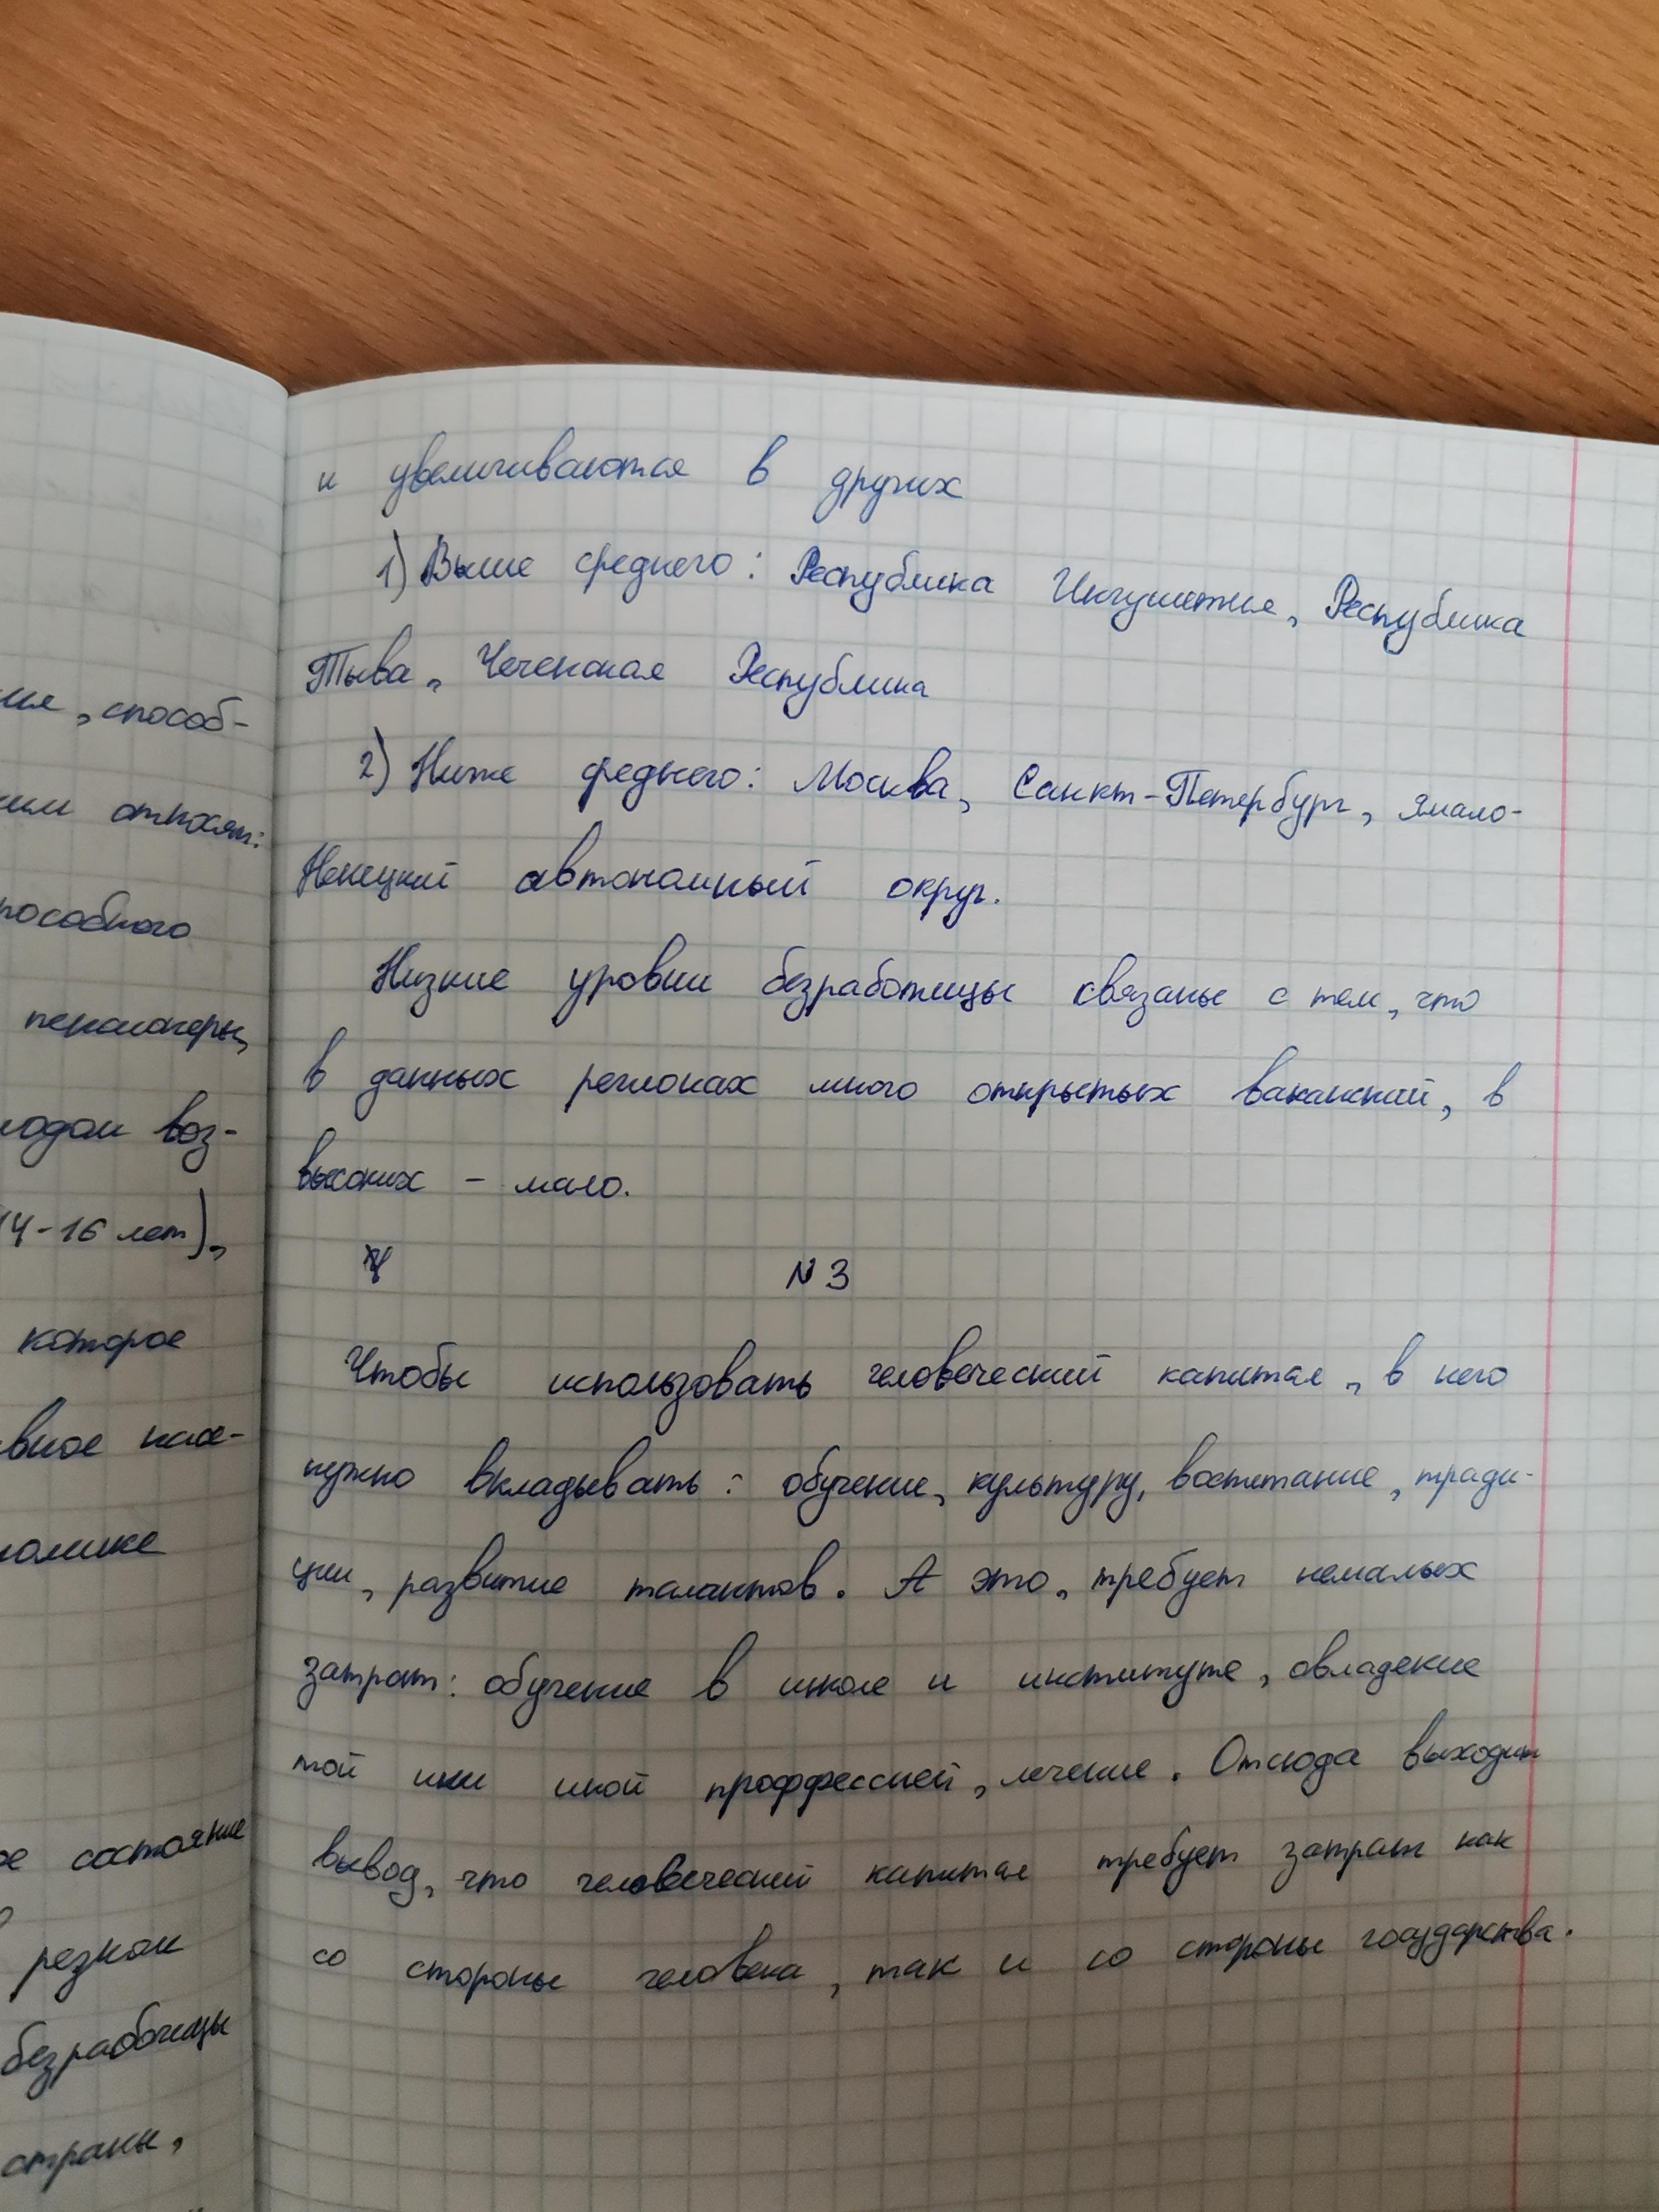 ие, способ-
ним относят:
пособного
пенсионеры,
молодом воз-
14-16 лет),
которое
вное насе-
номике
ое состояние
резком
безработицы
страны,
и увеличиваются в других
1) Выше среднего: Республика Ингушетия, Республика
Тыва, Чеченская Республика
2) Ниже среднего: Москва, Санкт-Петербург, Ямало-
Ненецкий автономный округ.
Низкие уровни безработицы связаны с тем, что
в данных регионах много открытых вакансий, в
высоких - мало.
N 3
Чтобы использовать человеческий капитал, в него
нужно вкладывать: обучение, культуру, воспитание, тради-
ции, развитие талантов. А это, требует немалых
затрат: обучение в школе и институте, овладение
той или иной проффессией, лечение. Отсюда выходит
вывод, что человеческий капитал требует затрат как
со стороны человека, так и со стороны государства.